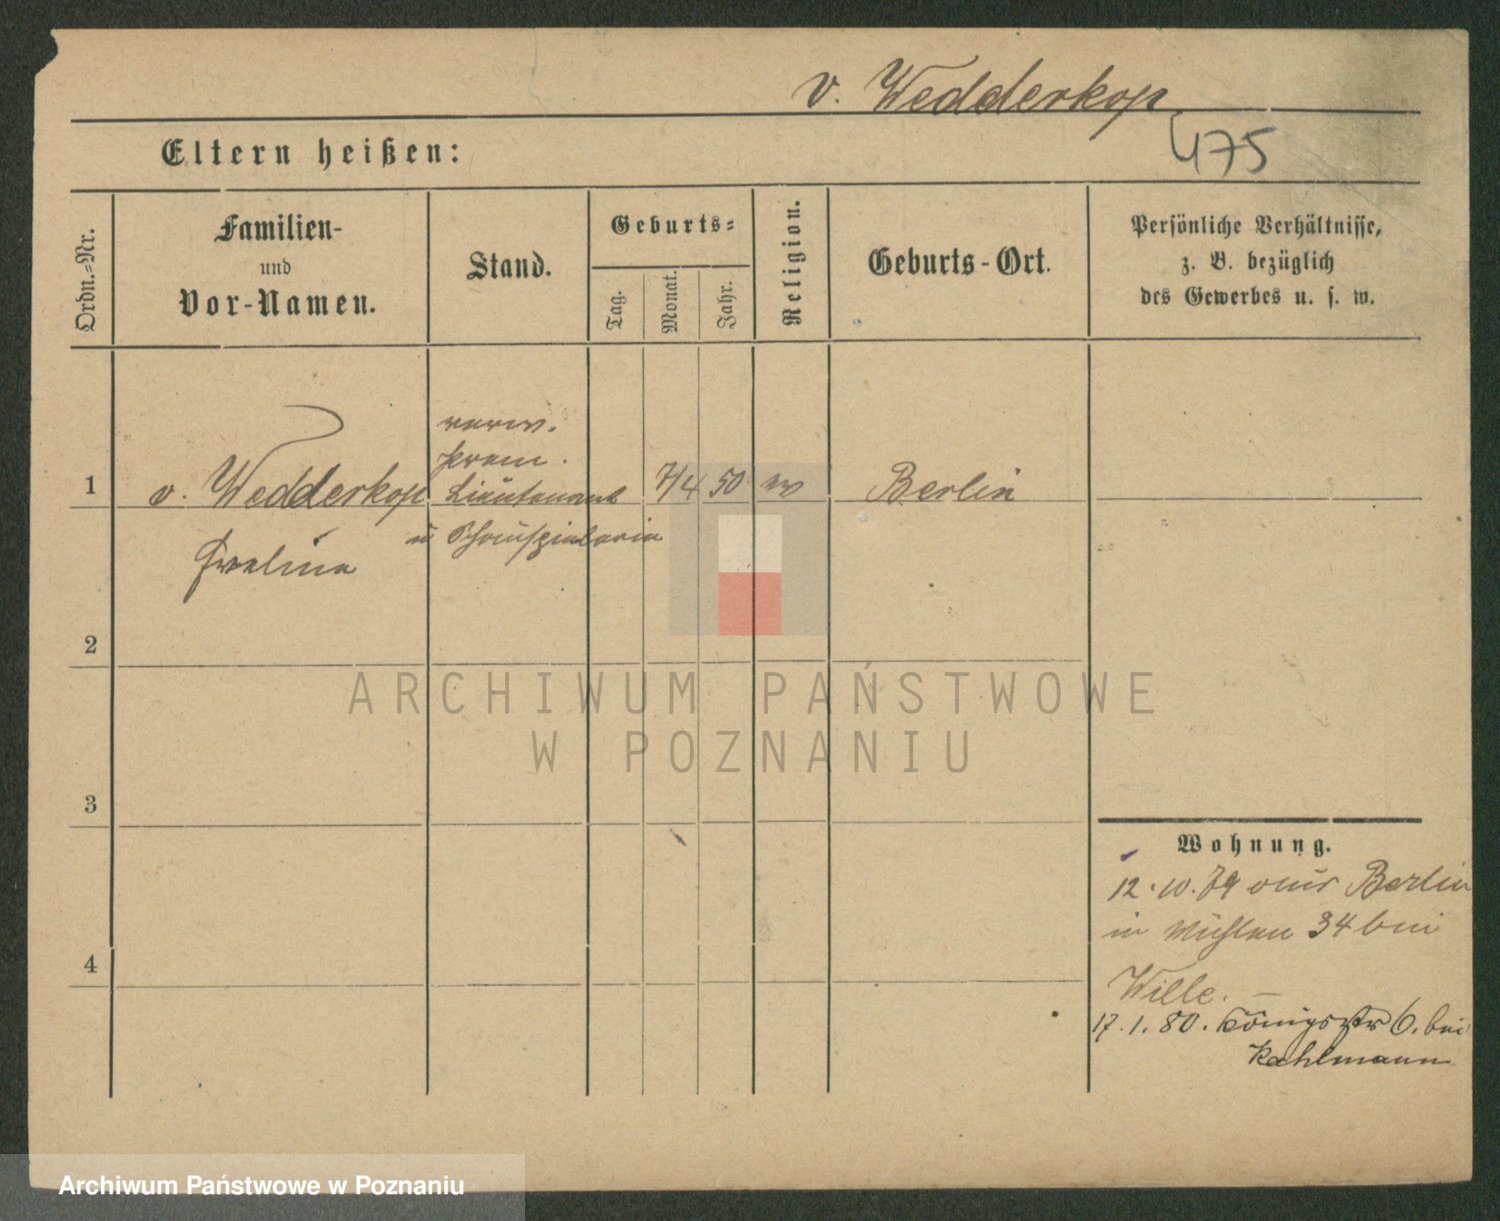 v. Wedderkop
475
Eltern heißen:
Ordn.-Nr.
Familien-
und
Vor-Namen.
Stand.
Geburts-
Tag.
Monat.
Jahr.
Religion.
Geburts-Ort.
Persönliche Verhältnisse,
z. B. bezüglich
des Gewerbes u. s. w.
1
v. Wedderkop
Eveline
verw.
prem.
Lieutenant
u Schauspielerin
7/4
50
ev
Berlin
2
3
4
Wohnung.
12.10.79 aus Berlin
in Mühlen 34 bei
Wille. –
17.1.80. Königsstr 6. bei
Kahlmann
ARCHIWUM PAŃSTWOWE
W POZNANIU
Archiwum Państwowe w Poznaniu